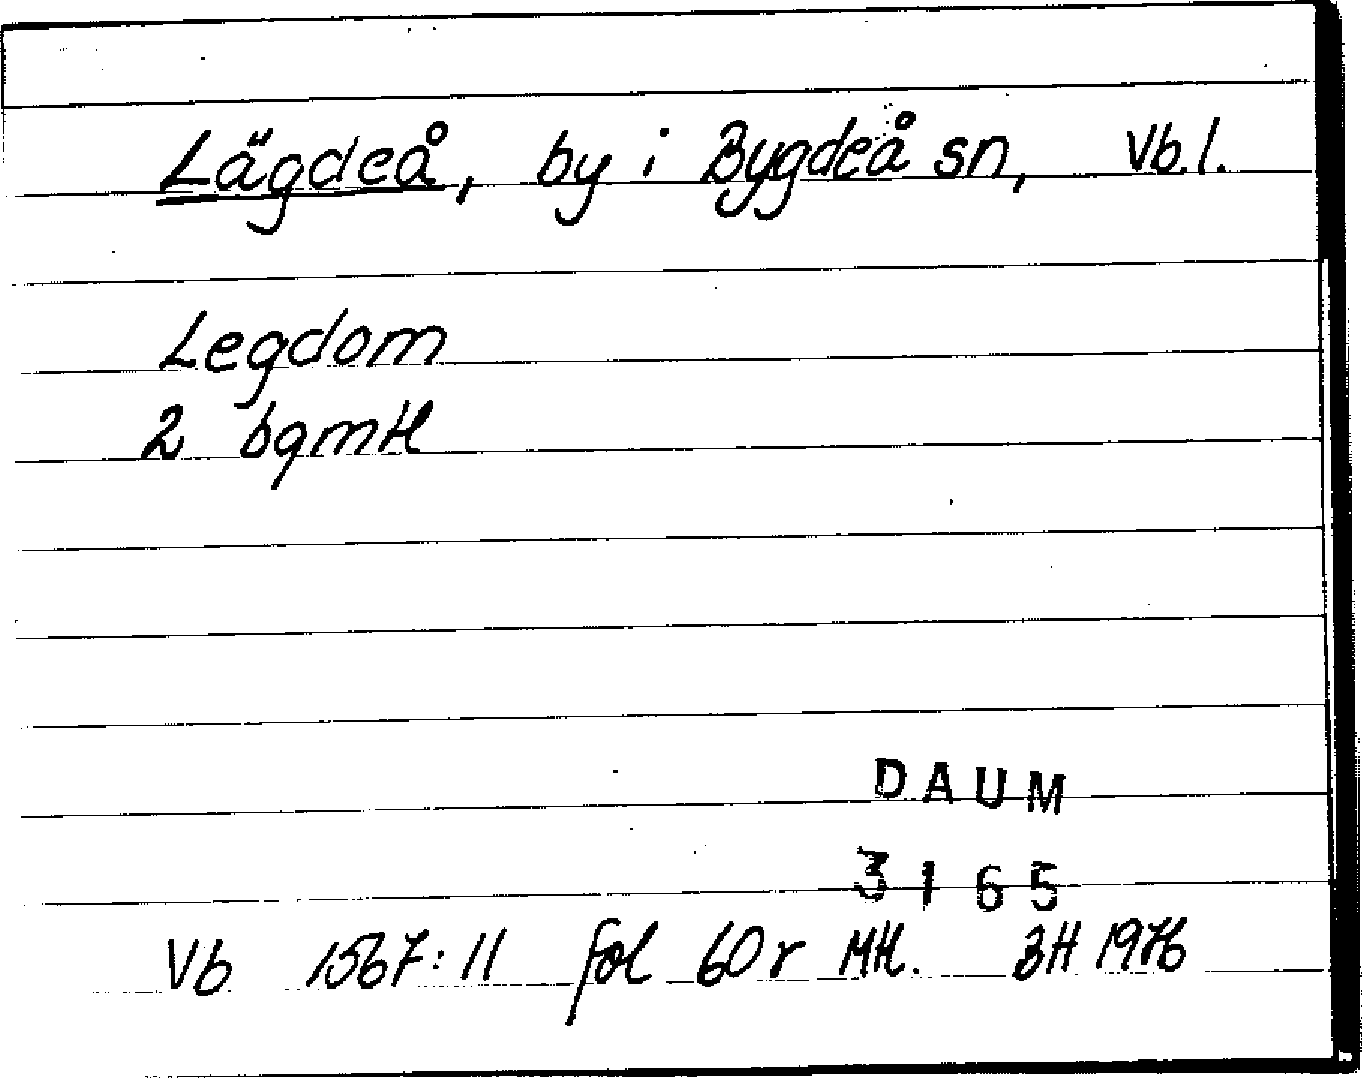 Lägdeå, by i Bygdeå sn, Vb.l.
Legdom
2 bgmtl
DAUM
3165
Vb 1567:11 fol 60r Mtl. BH 1976